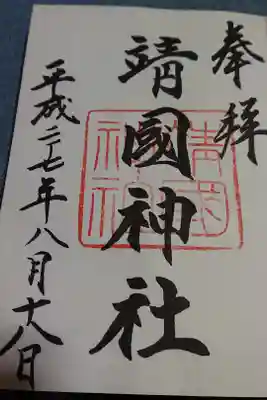 奉拝
靖國神社
平成二十七年八月十八日
靖國神社